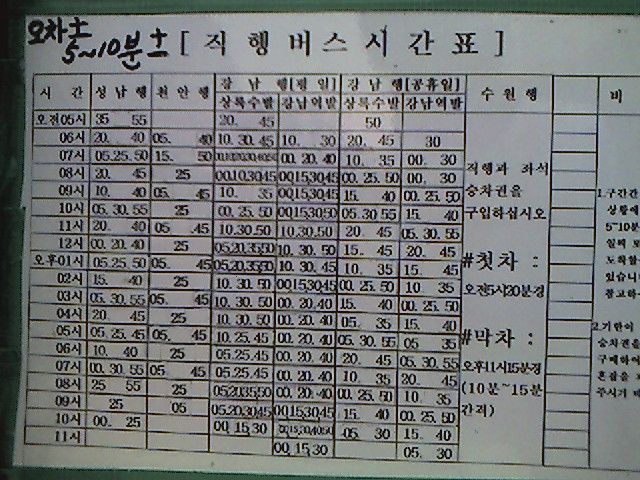 오차 ±
5~10분 ±
[ 직 행 버 스 시 간 표 ]
시 간 성남행 천안행 강 남 행[평 일] 강 남 행[공휴일] 수 원 행 비
상록수발 강남역발 상록수발 강남역발
오전05시 35 55 20. 45 50
06시 20. 40 05. 40 10. 30. 45 10. 30 20. 45 30
07시 05.25.50 15. 50 00. 20. 40 10. 35 00. 30
08시 20. 45 25 00.10.30.45 00.15.30.45 00.25.50 00. 30
09시 10. 40 05. 45 10. 35 00.15.30.45 15. 40 00.25.50
10시 05.30.55 25 00.25.50 00.15.30.50 05 30 55 15. 40
11시 20. 40 05. 45 10.30.50 10.30.50 20. 45 05.30.55
12시 00.20.40 25 05.20.35.50 10.30.50 15. 45 20. 45
오후01시 05.25.50 05. 45 05.20.35.50 10.30.45 10. 35 15. 45
02시 15. 40 25 10.30.50 00.15.30.45 00.25.50 10 35
03시 05.30.55 05. 45 10.30.50 00.20.40 15. 40 00.25.50
04시 20. 45 25 10.30.50 00.20.40 05. 35 15. 40
05시 05.25.45 05. 45 10.25.45 00.20.40 05.30.55 05 35
06시 10. 40 25 05.25.45 00.20.40 20. 45 05.30.55
07시 00.30.55 05. 45 05.25.45 00.20.40 10. 35 20. 45
08시 25 55 25 05.20.35.50 00.20.40 00.25.50 10. 35
09시 25 05 05.20.30.45 00.15.30.45 15. 40 00.25.50
10시 00. 25 00.15.30 05. 30 15. 40
11시 00.15.30 05. 30
직행과 좌석
승차권을
구입하십시오
#첫차 :
오전5시20분경
#막차 :
오후11시15분경
(10분~15분
간격)
1.구간간
상황에
5~10분
일찍
도착할
있습니
참고하
2.기한이
승차권을
구매하
혼잡을
주시기 바